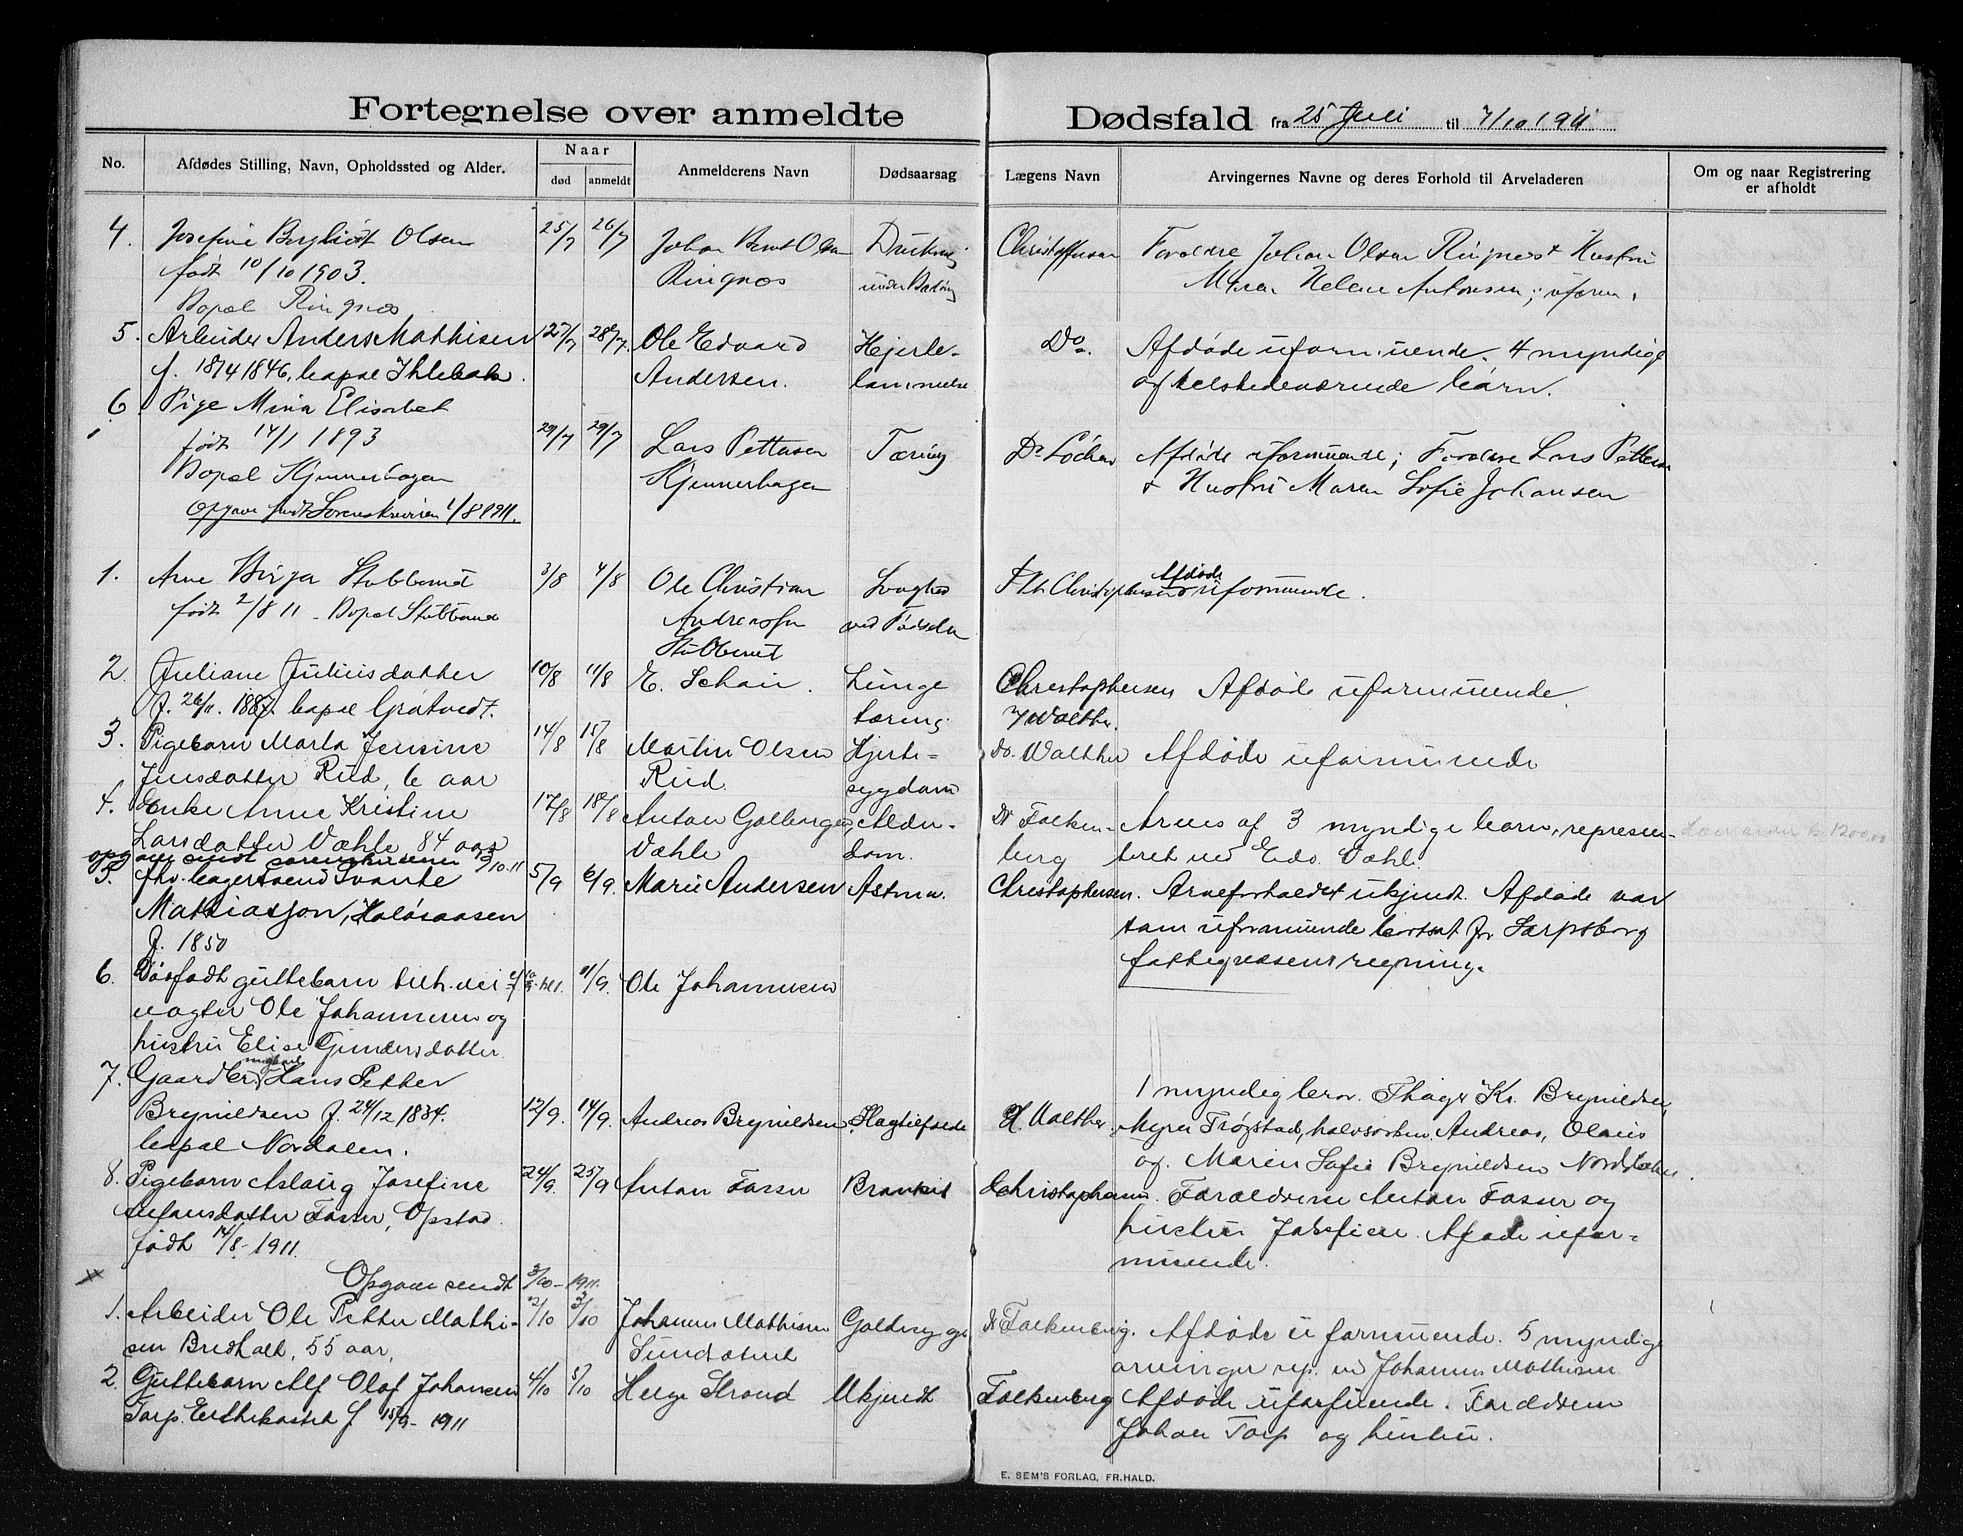 Fortegnelse over anmeldte Dødsfald fra 25 Juli til 7/10 1911
No. Afdødes Stilling, Navn, Opholdssted og Alder. Naar død anmeldt Anmelderens Navn Dødsaarsag Lægens Navn Arvingernes Navne og deres Forhold til Arveladeren Om og naar Registrering er afholdt
4. Josefine Bergliot Olsen 25/7 26/7 Johan Bernt Olsen Drukning Christoffersen Forældre Johan Olsen Ringnes + Hustru
født 10/10 1903. Ringnes under Badning Maren Helene Antonsen; uform.
Bopæl Ringnæs
5. Arbeider Anders Mathisen 27/7 28/7. Ole Edvard Hjerte- Do. Afdøde uformuende. 4 myndige
f. 18/4 1846, bopæl Ihlebak. Andersen. lammelse og tilstedeværende børn.
6. Pige Mina Elisabet
født 14/1 1893 29/7 29/7 Lars Pettersen Tæring Dr Løchen Afdøde uformuende; Forældre Lars Pettersen
Bopæl Kjennerhagen Kjennerhagen + Hustru Maren Sofie Johansen
Opgave sendt Sorenskriveren 1/8 1911.
1. Arne Birger Stubberud 3/8 4/8 Ole Christian Svaghed Christophersen Afdøde uformuende.
født 2/8 11 - Bopæl Stubberud Andreassen ved Fødselen
Stubberud
2. Juliane Juliusdatter 10/8 11/8 E. Schau. Lunge Christophersen Afdøde uformuende
f. 26/11. 1887. bopæl Gråtvedt. tæring. Walther.
3. Pigebarn Marta Jensine 14/8 15/8 Martin Olsen Hjerte- do. Walther Afdøde uformuende
Jensdatter Rud, 6 aar Rud. sygdom
4. Enke Anne Kristine 17/8 18/8 Anton Galbergs, Alder- Dr Falken- Arves af 3 myndige børn, represen-
Larsdatter Væhle 84 aar Væhle dom. berg teret ved Edv. Væhle.
opgave sendt sorenskriveren 10.11
5. fhv. bagersvend Svante 5/9 6/9. Marie Andersen Astma. Christophersen. Arveforholdet ukjendt. Afdøde var
Mathiasson, som uformuende bortsat for Sarpsborg
f. 1850 fattigvæsens regning.
6. Dødfødt guttebarn tilh. vei- 11/9. Ole Johannesen
vogter Ole Johannesen og
hustru Elise Gundersdatter
7. Gaardbr. Hans Petter 1 myndig bror. Kr. Brynildsen,
Brynildsen f. 24/12 1834. 12/9. 14/9. Andreas Brynildsen Slagtilfælde H. Walther Myrer Trøgstad, halvsøsken Andreas, Olaus
bopæl Nordalen. og. Maren Sofie Brynildsen
8. Pigebarn Aslaug Josefine 24/9. 25/9 Anton Fosser Bronkit Christophersen. Forældrene Anton Fosser og
Antonsdatter Fosser, Opstad. hustru Josefine. Afdøde ufor-
født 14/8 - 1911. muende.
Opgave sendt 3/10 - 1911.
1. Arbeider Ole Petter Mathi- 2/10 3/10 Johannes Mathisen Galdesyge Dr Falkenberg. Afdøde uformuende. 5 myndige
sen Bredholt, 55 aar, Sundsætret arvinger rep. ved Johannes Mathisen
2. Guttebarn Alf Olaf Johansen 4/10 5/10 Helge Strand Ukjendt Falkenberg Afdøde uformuende. Forældrene
Torp. f 15/9 - 1911 Johan Torp og hustru.
E. SEM'S FORLAG, FR.HALD.